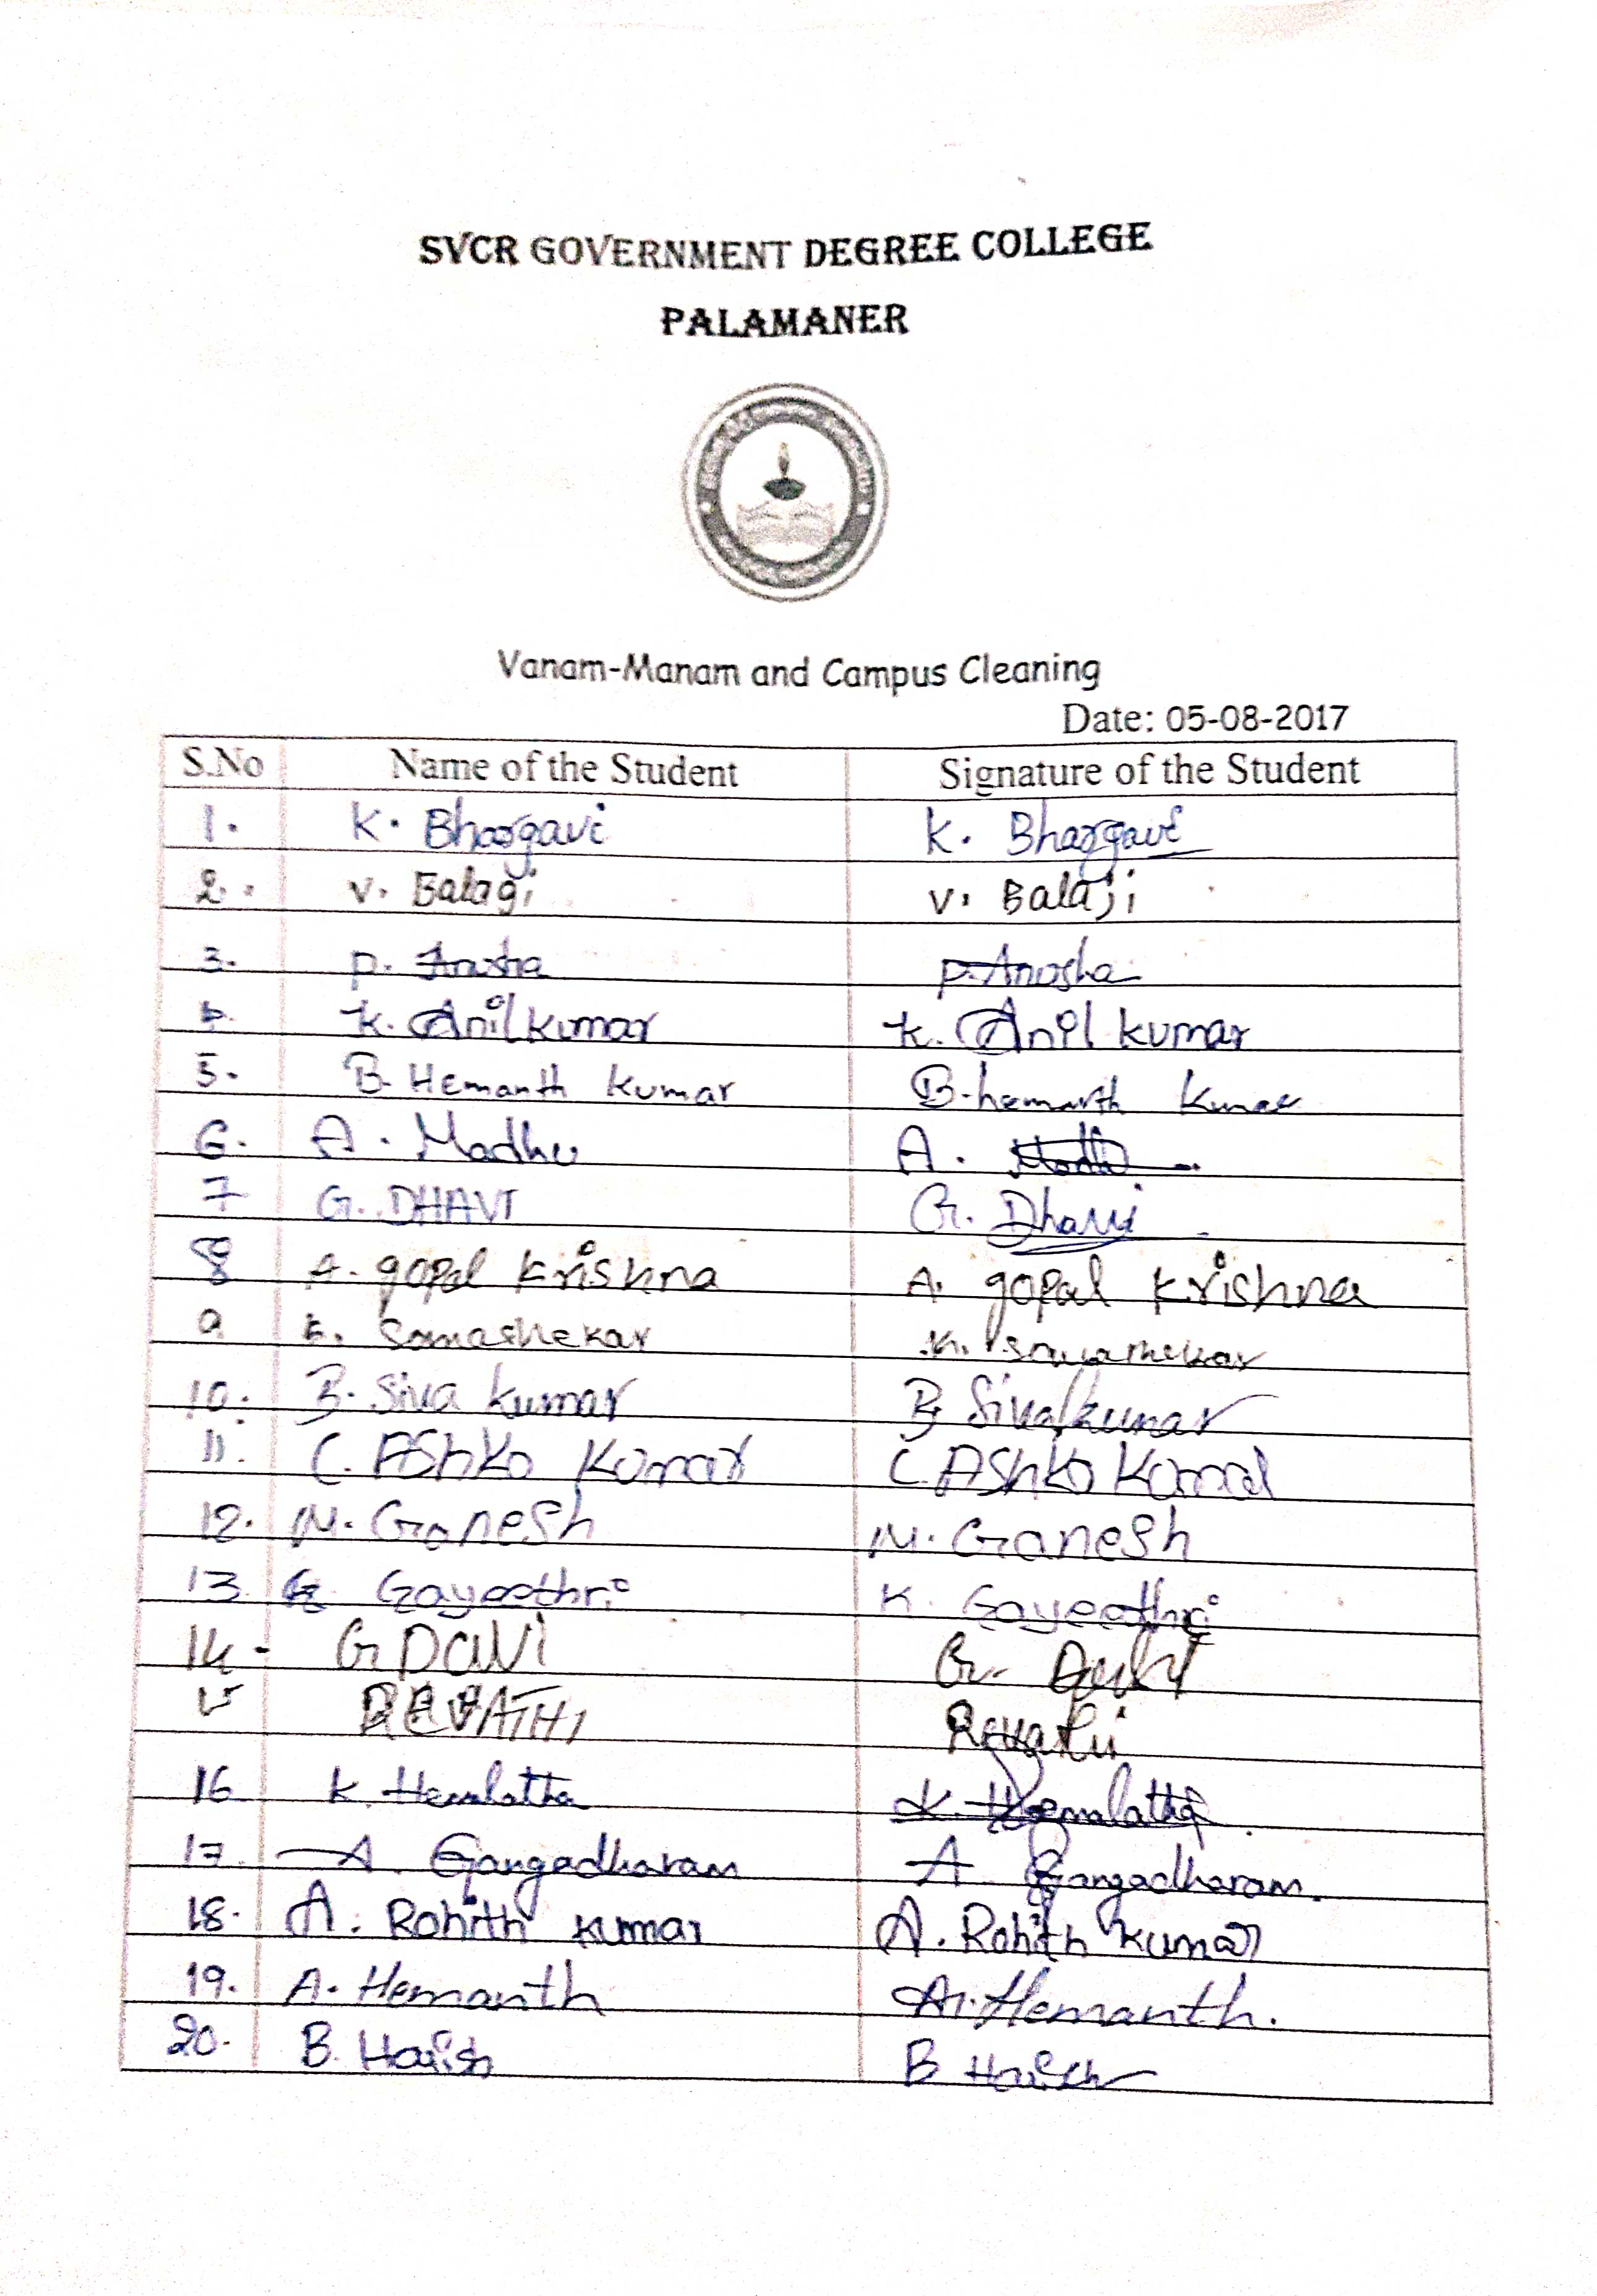 SVCR GOVERNMENT DEGREE COLLEGE
PALAMANER
Vanam-Manam and Campus Cleaning
Date: 05-08-2017
S.No Name of the Student Signature of the Student
1. K. Bhargavi K. Bhargavi
2. V. Balagi V. Balaji
3. P. Anusha P. Anusha
4. K. Anil kumar K. Anil kumar
5. B. Hemanth Kumar B. hemanth Kumar
6. A. Madhu A. Madhu
7 G. DHAVI G. Dhavi
8 A. gopal Krishna A. gopal Krishna
9 K. Somashekar K. Somashekar
10. B. Siva kumar B. Siva kumar
11. C. AShko Kumar C. AShko Kumar
12. M. Ganesh M. Ganesh
13 Gayeethri K. Gayeethri
14. G. Davi G.
15 REVATHI Revathi
16 K. Hemalatha K. Hemalatha
17. A. Gangadharam A. Gangadharam.
18. A. Rohith kumar A. Rohith kumar
19. A. Hemanth A. Hemanth.
20. B. Harish B Harish